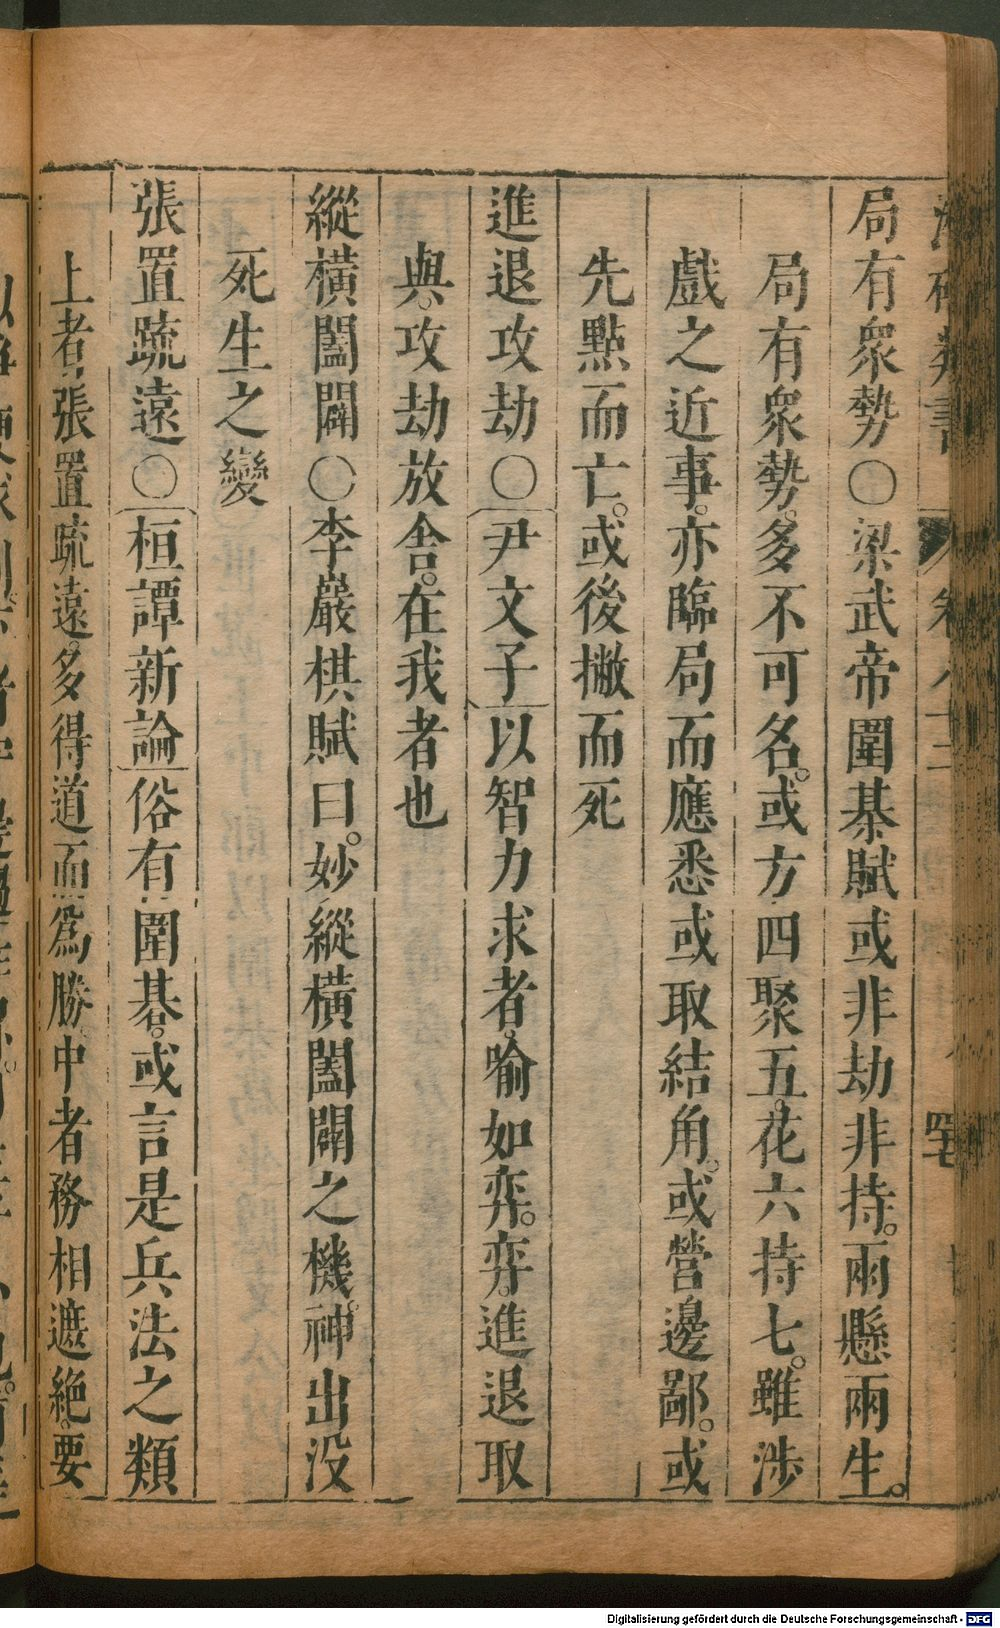 局有衆勢〇梁武帝圍棊賦或非劫非持。兩懸兩生。
局有衆勢。多不可名。或方四聚五。花六持七。雖涉
戲之近事。亦臨局而應悉或取結角。或營邊鄙。或
先點而亡。或後撇而死
進退攻劫〇尹文子以智力求者。喻如弈。弈。進退取
與。攻劫放舍。在我者也
縱橫闔闢〇李嚴棋賦曰。妙縱橫闔闢之機。神出没
死生之變
張置疏遠〇桓譚新論俗有圍碁。或言是兵法之類
上者。張置疏遠。多得道而爲勝。中者務相遮絶。要
Digitalisierung gefördert durch die Deutsche Forschungsgemeinschaft - DFG